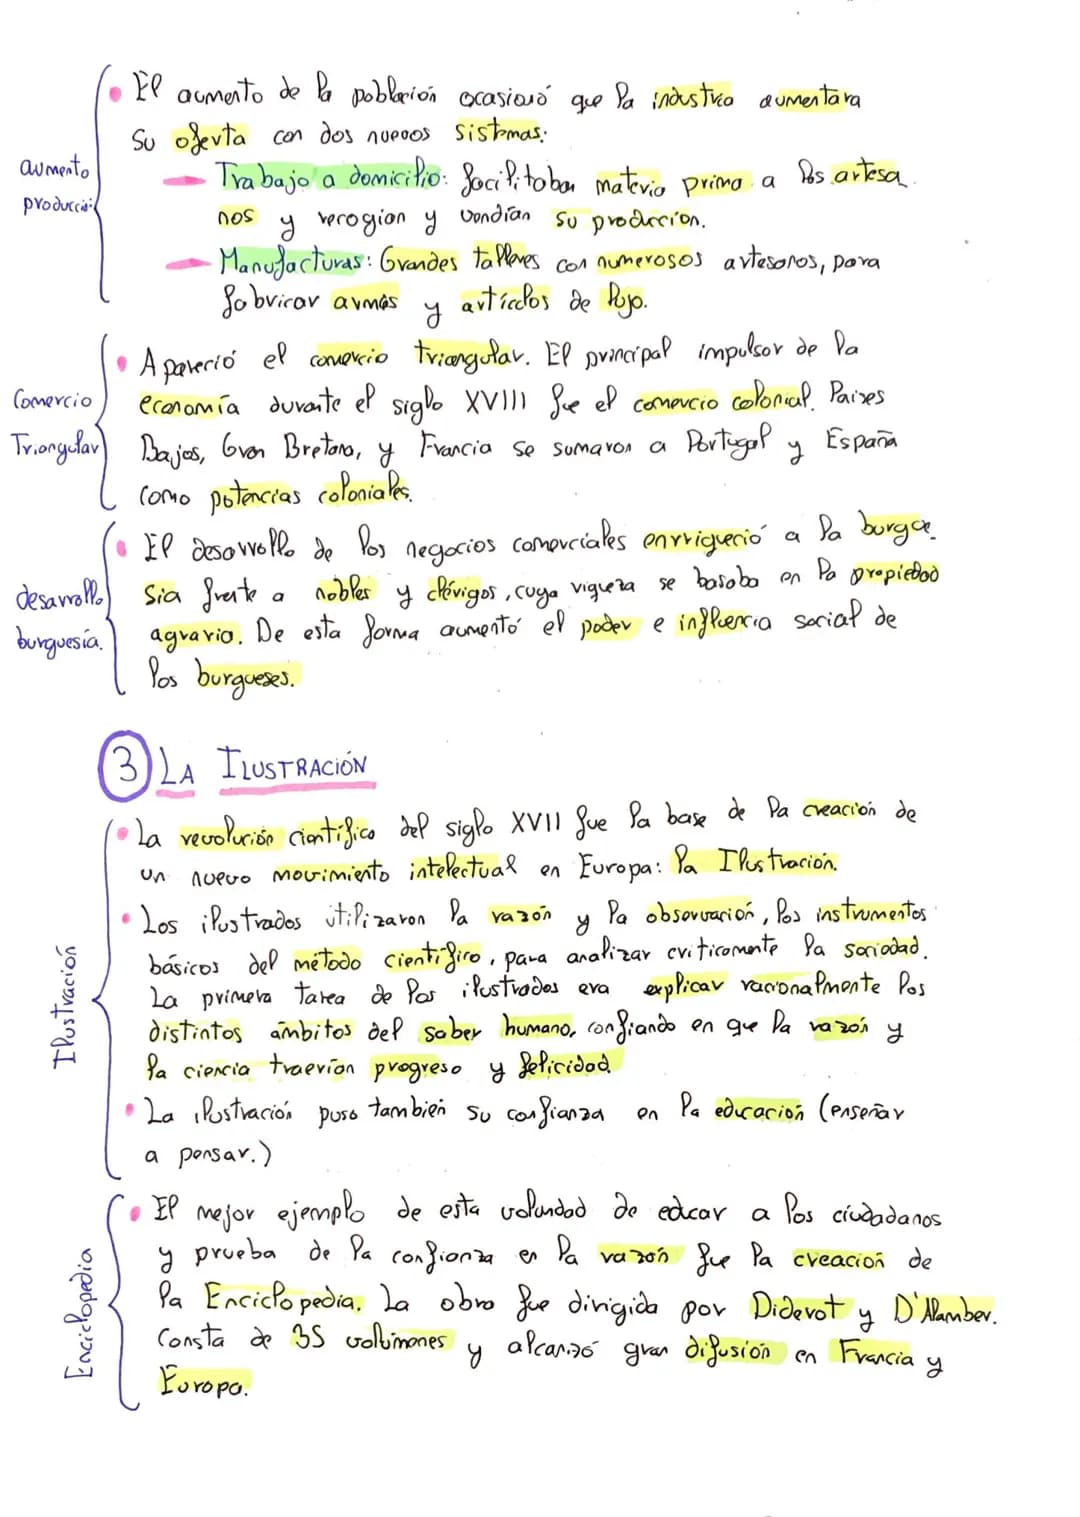 • El aumento de la población ocasionó que la industria aumentara
su oferta con dos nuevos sistemas:
aumento
producción
— Trabajo a domicilio: facilitaban materia prima a los artesa
nos y recogían y vendían su producción.
— Manufacturas: Grandes talleres con numerosos artesanos, para
fabricar armas y artículos de lujo.
Comercio
Triangular
• Apareció el comercio triangular. El principal impulsor de la
economía durante el siglo XVIII fue el comercio colonial. Países
Bajos, Gran Bretana, y Francia se sumaron a Portugal y España
como potencias coloniales.
desarrollo
burguesía.
• El desarrollo de los negocios comerciales enrriqueció a la burgue
sia frente a nobles y clérigos, cuya riqueza se basaba en la propiedad
agraria. De esta forma aumentó el poder e influencia social de
los burgueses.
3 LA ILUSTRACIÓN
Ilustración
• La revolución científica del siglo XVII fue la base de la creación de
un nuevo movimiento intelectual en Europa: la Ilustración.
• Los ilustrados utilizaron la razón y la observación, los instrumentos
básicos del método científico, para analizar críticamente la sociedad.
La primera tarea de los ilustrados era explicar racionalmente los
distintos ámbitos del saber humano, confiando en que la razón y
la ciencia traerían progreso y felicidad.
• La ilustración puso también su confianza en la educación (enseñar
a pensar.)
Enciclopedia
• El mejor ejemplo de esta volundad de educar a los ciudadanos
y prueba de la confianza en la razón fue la creación de
la Enciclopedia. La obra fue dirigida por Diderot y D'Alamber.
Consta de 35 vollúmones y alcanzó gran difusión en Francia y
Europa.